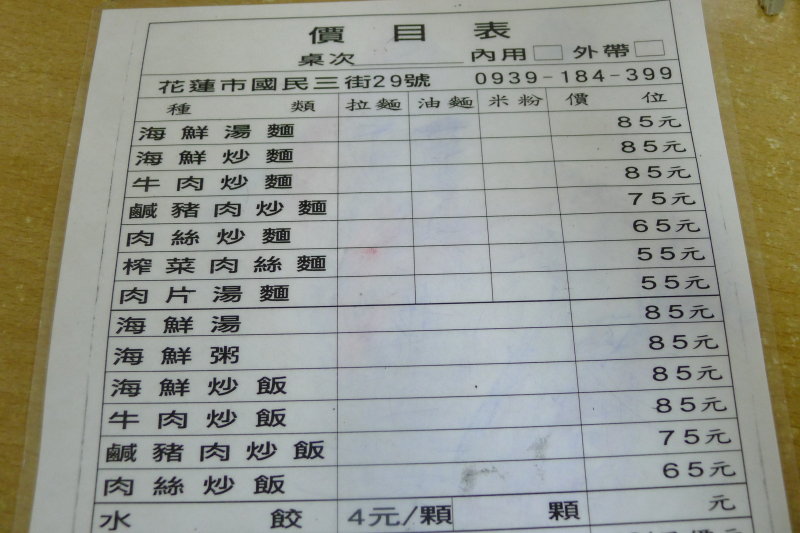 價目表
桌次 內用 外帶
花蓮市國民三街29號 0939-184-399
種類 拉麵 油麵 米粉 價位
海鮮湯麵 85元
海鮮炒麵 85元
牛肉炒麵 85元
鹹豬肉炒麵 75元
肉絲炒麵 65元
榨菜肉絲麵 55元
肉片湯麵 55元
海鮮湯 85元
海鮮粥 85元
海鮮炒飯 85元
牛肉炒飯 85元
鹹豬肉炒飯 75元
肉絲炒飯 65元
水餃 4元/顆 顆 元